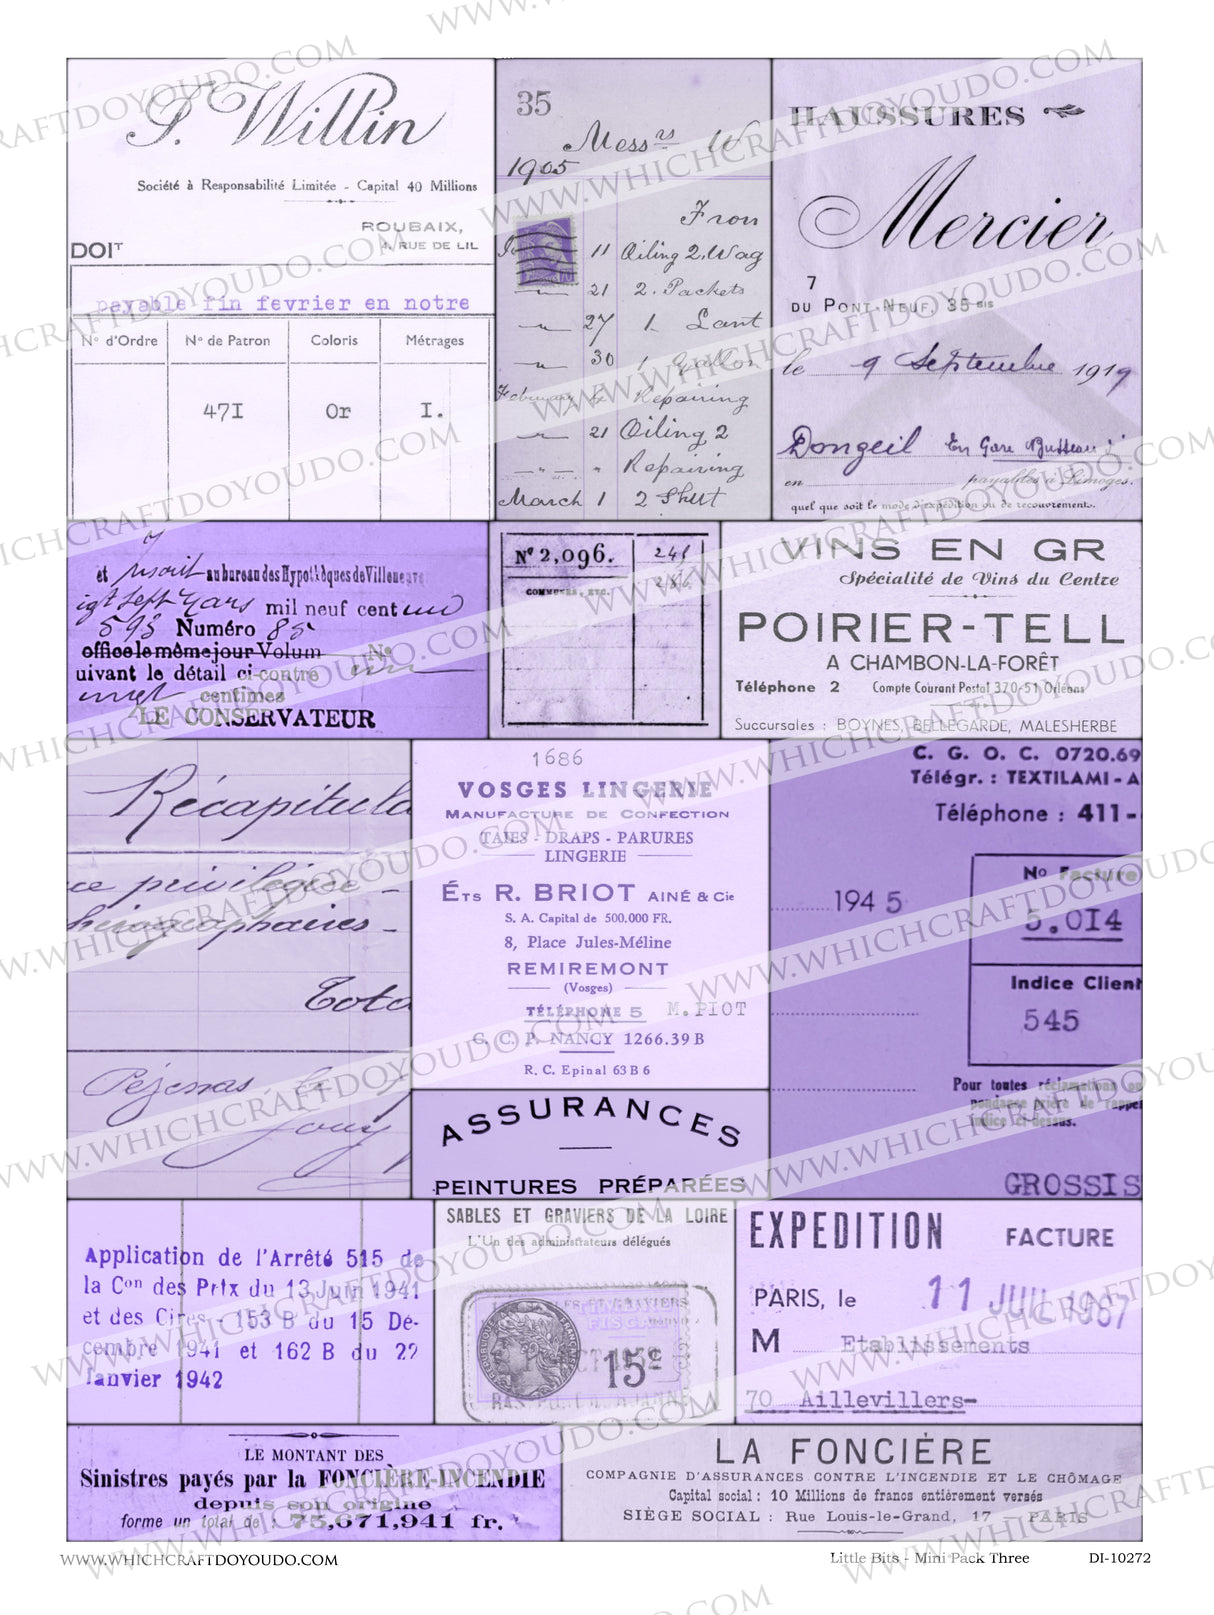 P. Willin
Société à Responsabilité Limitée - Capital 40 Millions
ROUBAIX,
4, RUE DE LIL
DOIT
payable fin fevrier en notre
No d'Ordre No de Patron Coloris Métrages
471 Or I.
35
Messrs W
1905
Fron
11 Oiling 2. Wag
21 2. Packets
27 1 Lant
30 1 Gallon
February Repairing
21 Oiling 2
" Repairing
March 1 2 Shut
HAUSSURES
Mercier
7
DU PONT-NEUF, 35 BIS
le 9 Septembre 1919
Dongeil En Gare
en payables à Limoges.
quel que soit le mode d'expédition ou de recouvrements.
et au bureau des Hypothèques de Villeneuve
mil neuf cent
593 Numéro 85
office le même jour Volum No
uivant le détail ci-contre
centimes
LE CONSERVATEUR
No 2,096. 241
286
COMMUNES, ETC.
VINS EN GR
Spécialité de Vins du Centre
POIRIER-TELL
A CHAMBON-LA-FORÊT
Téléphone 2 Compte Courant Postal 370-51 Orléans
Succursales : BOYNES, BELLEGARDE, MALESHERBE
Récapitula
ce privilégiée -
hirographaires -
Tota
Pézenas le
1686
VOSGES LINGERIE
MANUFACTURE DE CONFECTION
TAIES - DRAPS - PARURES
LINGERIE
Éts R. BRIOT AINÉ & Cie
S. A. Capital de 500.000 FR.
8, Place Jules-Méline
REMIREMONT
(Vosges)
TÉLÉPHONE 5 M. PIOT
C. C. P. NANCY 1266.39 B
R. C. Epinal 63 B 6
C. G. O. C. 0720.69
Télégr. : TEXTILAMI - A
Téléphone : 411 -
No Facture
1945
5.014
Indice Clien
545
Pour toutes réclamations ou
pondance prière de rappel
indice ci-dessus.
GROSSIS
ASSURANCES
PEINTURES PRÉPARÉES
Application de l'Arrêté 515 de
la Con des Prix du 13 Juin 1941
et des Cires - 153 B du 15 Dé-
cembre 1941 et 162 B du 22
Janvier 1942
SABLES ET GRAVIERS DE LA LOIRE
L'Un des administrateurs délégués
FISCAL
15c
EXPEDITION FACTURE
PARIS, le 11 JUIL 1967
M Etablissements
70 Aillevillers-
LE MONTANT DES
Sinistres payés par la FONCIÈRE-INCENDIE
depuis son origine
forme un total de : 75,671,941 fr.
LA FONCIÈRE
COMPAGNIE D'ASSURANCES CONTRE L'INCENDIE ET LE CHÔMAGE
Capital social : 10 Millions de francs entièrement versés
SIÈGE SOCIAL : Rue Louis-le-Grand, 17 - PARIS
WWW.WHICHCRAFTDOYOUDO.COM
Little Bits - Mini Pack Three DI-10272